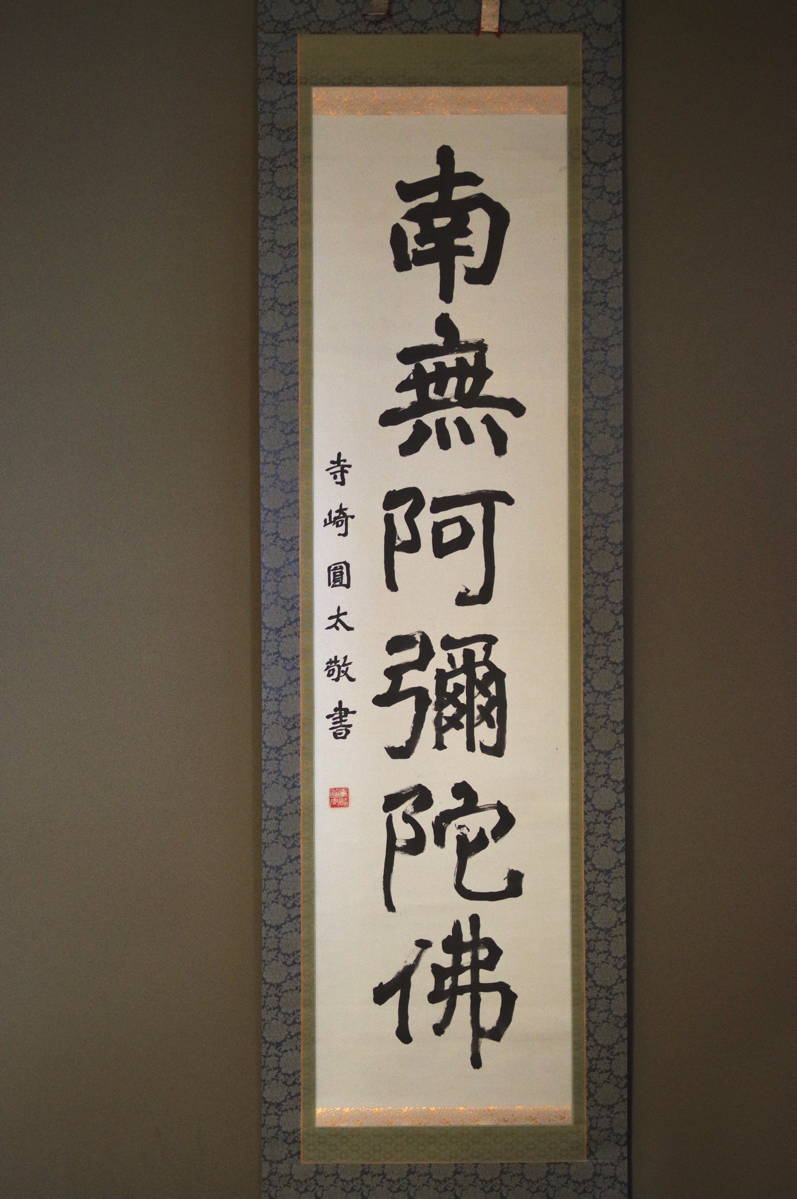 南無阿彌陀佛
寺崎圓太敬書